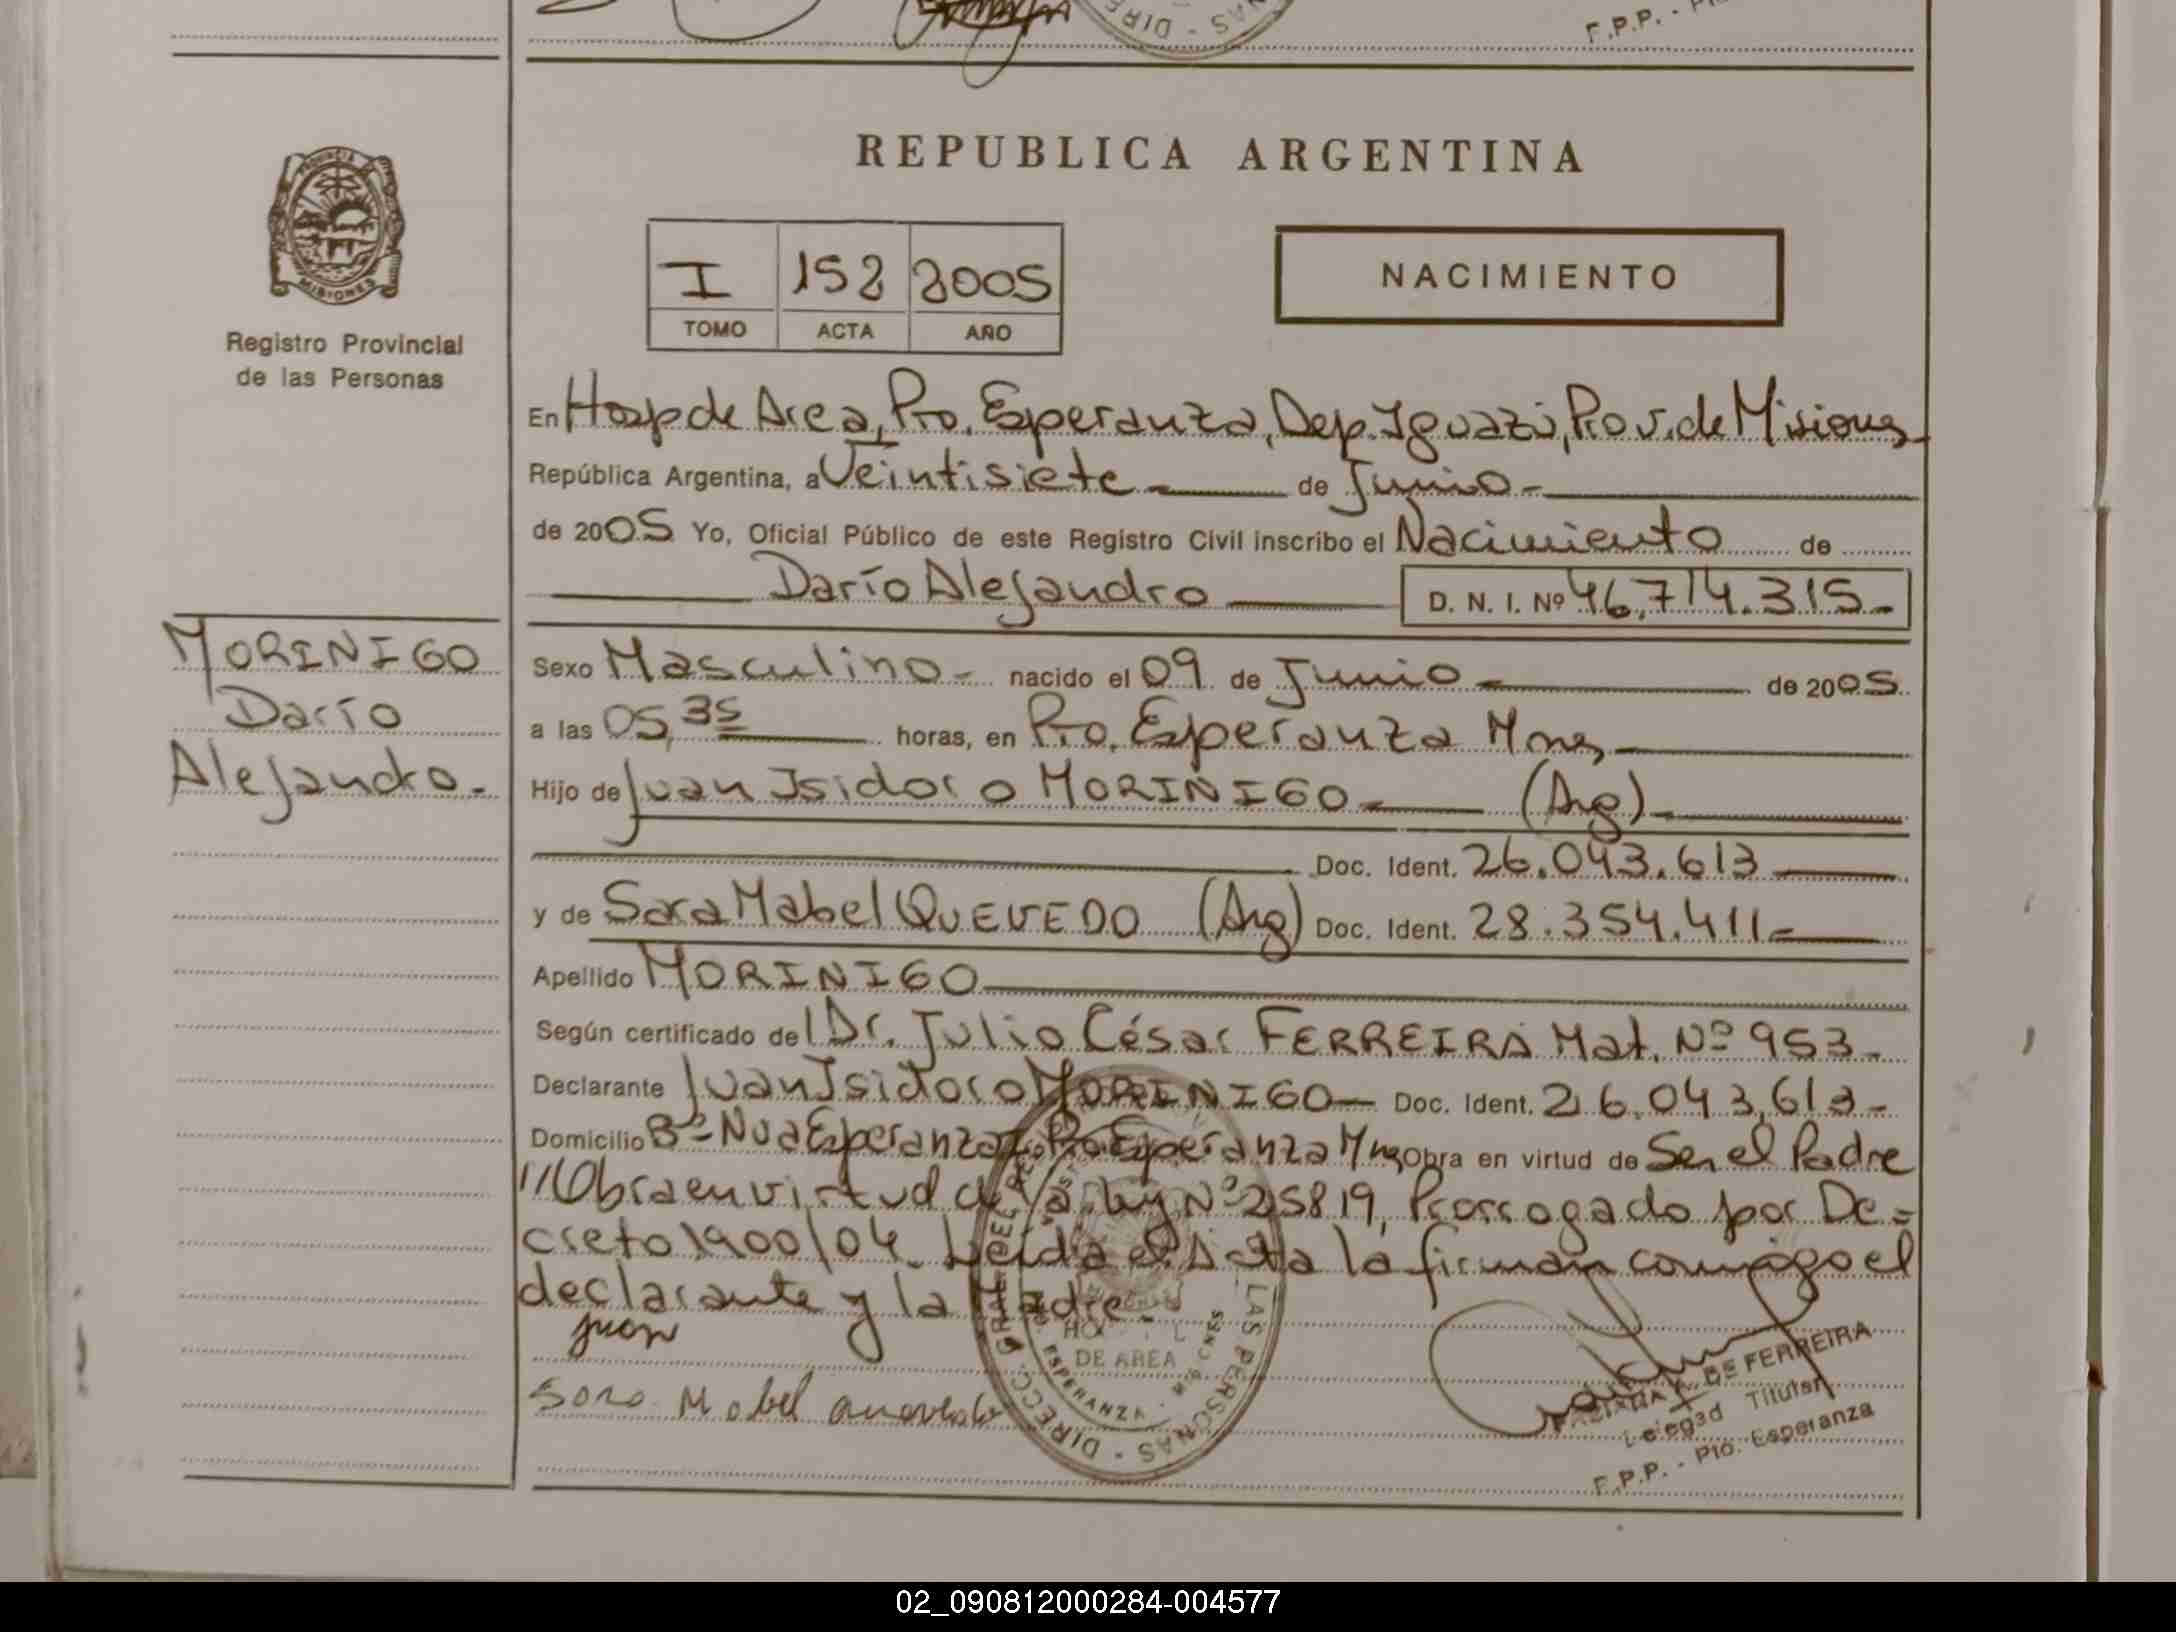 F.P.P. -
PROVINCIA
MISIONES
Registro Provincial
de las Personas
REPUBLICA ARGENTINA
I 152 2005
TOMO ACTA AÑO
NACIMIENTO
En Hosp de Area, Pto. Esperanza, Dep. Iguazú, Prov. de Misiones
República Argentina, a Veintisiete de Junio
de 2005 Yo, Oficial Público de este Registro Civil inscribo el Nacimiento de
Darío Alejandro D. N. I. Nº 46.714.315
MORINIGO
Darío
Alejandro
Sexo Masculino nacido el 09 de Junio de 2005
a las 05,35 horas, en Pto. Esperanza Mnes
Hijo de Juan Isidoro MORINIGO (Arg)
Doc. Ident. 26.043.613
y de Sara Mabel QUEVEDO (Arg) Doc. Ident. 28.354.411
Apellido MORINIGO
Según certificado del Dr. Julio César FERREIRA Mat. Nº 953
Declarante Juan Isidoro MORINIGO Doc. Ident. 26.043,613
Domicilio Bº Nva Esperanza Pto Esperanza Mnes Obra en virtud de Ser el Padre
//Obra en virtud de la Ley Nº 25819, Prorrogado por De=
creto 1900/04. Leída el Acta la firman conmigo el
declarante y la Madre
juan
Sara Mabel Quevedo
HOSPITAL
DE AREA
ESPERANZA - MISIONES
LAS PERSONAS - DIRECC. GRAL. DEL
DE FERREIRA
Titular
Pto. Esperanza
F.P.P. -
02_090812000284-004577